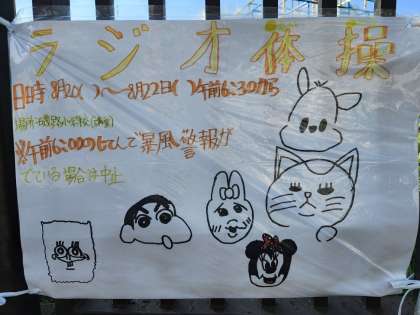 ラジオ体操
日時 8月20( )〜8月22日( )午前6:30から
※午前6:00の時点で暴風警報が
でている場合は中止